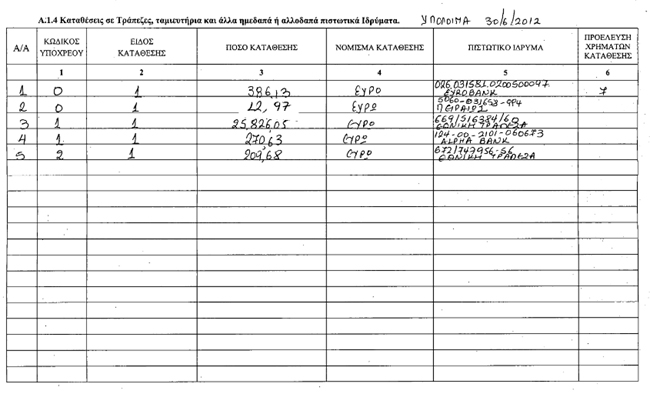 Α.1.4 Καταθέσεις σε Τράπεζες, ταμιευτήρια και άλλα ημεδαπά ή αλλοδαπά πιστωτικά Ιδρύματα. ΥΠΟΛΟΙΠΑ 30/6/2012
Α/Α ΚΩΔΙΚΟΣ ΥΠΟΧΡΕΟΥ ΕΙΔΟΣ ΚΑΤΑΘΕΣΗΣ ΠΟΣΟ ΚΑΤΑΘΕΣΗΣ ΝΟΜΙΣΜΑ ΚΑΤΑΘΕΣΗΣ ΠΙΣΤΩΤΙΚΟ ΙΔΡΥΜΑ ΠΡΟΕΛΕΥΣΗ ΧΡΗΜΑΤΩΝ ΚΑΤΑΘΕΣΗΣ
1 2 3 4 5 6
1 0 1 386,13 ΕΥΡΟ 026.031581.0200500097 EUROBANK 7
2 0 1 12,97 ΕΥΡΩ 5060-031653-994 ΠΕΙΡΑΙΩΣ
3 1 1 25.826,05 ΕΥΡΩ 669/516384/60 ΕΘΝΙΚΗ ΤΡΑΠΕΖΑ
4 1 1 270,63 ΕΥΡΩ 124-00-2101-060673 ALPHA BANK
5 2 1 209,68 ΕΥΡΩ 672/747956-56 ΕΘΝΙΚΗ ΤΡΑΠΕΖΑ